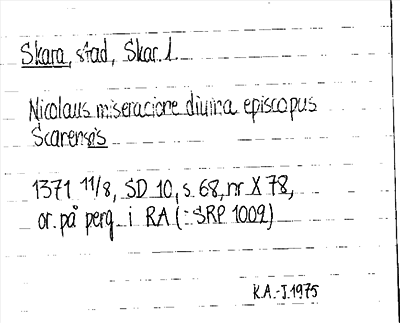 Skara, stad, Skar. l.
Nicolaus miseracione diuina episcopus
Scarensis
1371 11/8, SD 10, s. 68, nr X 78,
or. på perg. i RA (= SRP 1009)
K.A.-J. 1975